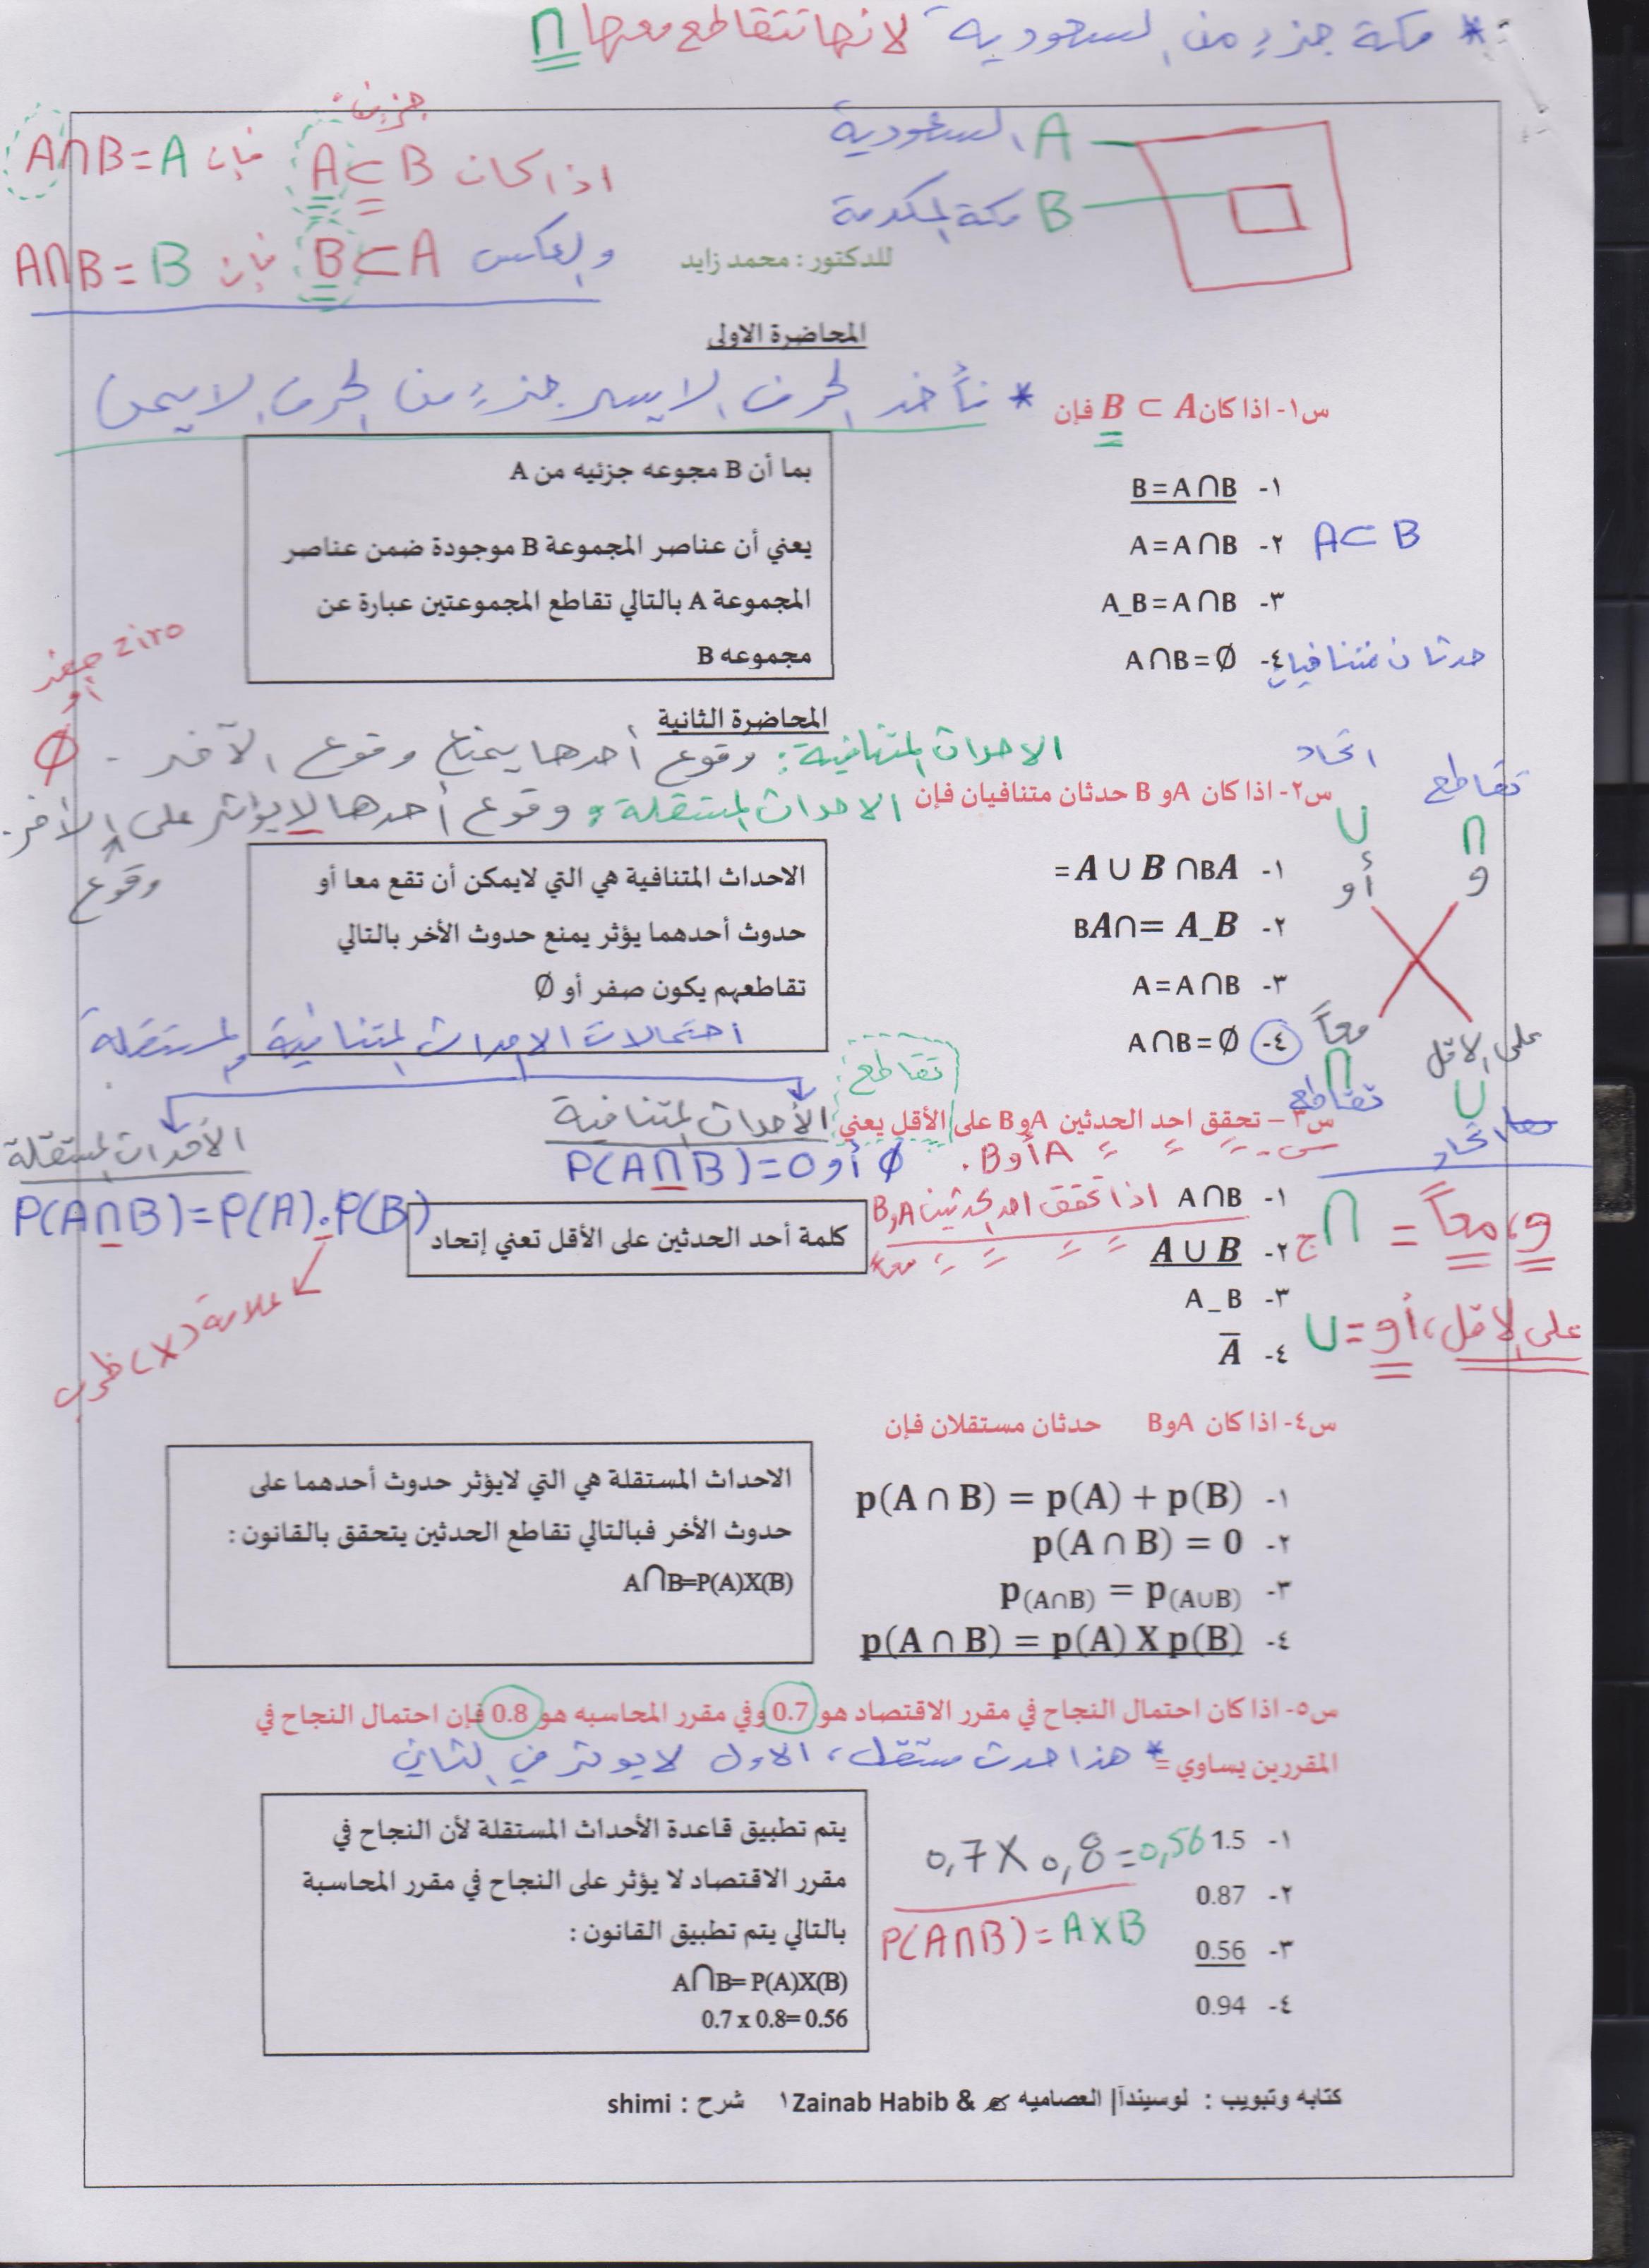 * مكة جزء من السعودية لانها تتقاطع معها ∩
جزئية
اذا كان A⊂B فإن A∩B=A
والعكس B⊂A فإن A∩B=B
A السعودية
B مكة المكرمة
للدكتور : محمد زايد
المحاضرة الاولى
س١- اذا كان B ⊂ A فإن
* نأخذ الحرف الايسر جزء من الحرف الايمن
١- B=A∩B
٢- A=A∩B
A⊂B
٣- A_B=A∩B
٤- A∩B=∅
حدثان متنافيان
بما أن B مجوعه جزئيه من A
يعني أن عناصر المجموعة B موجودة ضمن عناصر
المجموعة A بالتالي تقاطع المجموعتين عبارة عن
مجموعه B
ziro صفر
أو
∅
المحاضرة الثانية
الاحداث المتنافية: وقوع أحدها يمنع وقوع الآخر.
س٢- اذا كان Aو B حدثان متنافيان فإن
الاحداث المستقلة: وقوع أحدها لا يؤثر على الآخر.
وقوع
١- =A ∪ B ∩BA
٢- BA∩= A_B
٣- A=A∩B
٤- A∩B=∅
الاحداث المتنافية هي التي لايمكن أن تقع معا أو
حدوث أحدهما يؤثر يمنع حدوث الأخر بالتالي
تقاطعهم يكون صفر أو ∅
تقاطع
∩
و
اتحاد
∪
أو
معاً
∩
تقاطع
على الاقل
∪
اتحاد
احتمالات الاحداث المتنافية والمستقلة
الأحداث المتنافية
P(A∩B)=0 أو ∅
الأحداث المستقلة
P(A∩B)=P(A).P(B)
علامة (X) ضرب
تقاطع
س٣ – تحقق احد الحدثين Aو B على الأقل يعني
A أو B.
١- A∩B
اذا تحقق احد الحدثين A و B
معا
٢- A ∪ B
٣- A_B
٤- A̅
كلمة أحد الحدثين على الأقل تعني إتحاد
و، معاً = ∩
على الاقل، أو = ∪
س٤- اذا كان Aو B حدثان مستقلان فإن
١- p(A ∩ B) = p(A) + p(B)
٢- p(A ∩ B) = 0
٣- p(A∩B) = p(A∪B)
٤- p(A ∩ B) = p(A) X p(B)
الاحداث المستقلة هي التي لايؤثر حدوث أحدهما على
حدوث الأخر فبالتالي تقاطع الحدثين يتحقق بالقانون :
A∩B=P(A)X(B)
س٥- اذا كان احتمال النجاح في مقرر الاقتصاد هو 0.7 وفي مقرر المحاسبه هو 0.8 فإن احتمال النجاح في
المقررين يساوي =
* هذا حدث مستقل، الاول لا يوثر في الثاني
١- 1.5
٢- 0.87
٣- 0.56
٤- 0.94
0,7 X 0,8=0,56
P(A∩B)= A X B
يتم تطبيق قاعدة الأحداث المستقلة لأن النجاح في
مقرر الاقتصاد لا يؤثر على النجاح في مقرر المحاسبة
بالتالي يتم تطبيق القانون :
A∩B= P(A)X(B)
0.7 x 0.8= 0.56
كتابه وتبويب : لوسيندآ| العصاميه & Zainab Habib ١ شرح : shimi